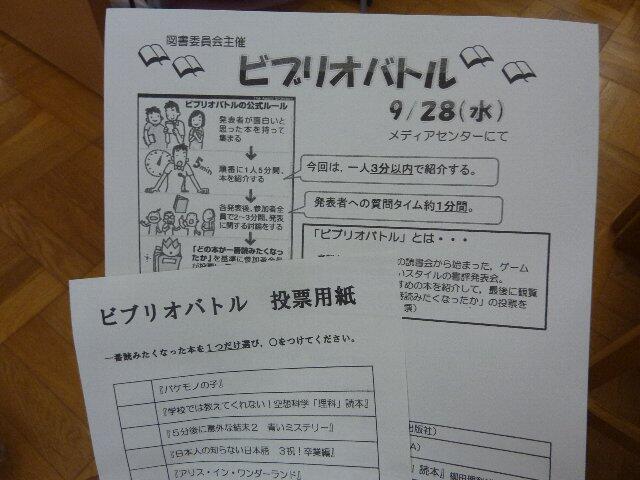 図書委員会主催
ビブリオバトル
9/28(水)
メディアセンターにて
ビブリオバトルの公式ルール
発表者が面白いと
思った本を持って
集まる
5min
順番に1人5分間、
本を紹介する
各発表後、参加者全
員で2~3分間、発表
に関する討論をする
「どの本が一番読みたくなっ
たか」を基準に参加者全員が
今回は、一人3分以内で紹介する。
発表者への質問タイム約1分間。
「ビブリオバトル」とは・・・
の読書会から始まった,ゲーム
いスタイルの書評発表会。
すめの本を紹介して,最後に観覧
読みたくなったか」の投票を
ビブリオバトル 投票用紙
一番読みたくなった本を1つだけ選び,○をつけてください。
『バケモノの子』
『学校では教えてくれない!空想科学「理科」読本』
『5分後に意外な結末2 青いミステリー』
『日本人の知らない日本語 3祝!卒業編』
『アリス・イン・ワンダーランド』
出版社)
A)
」読本』